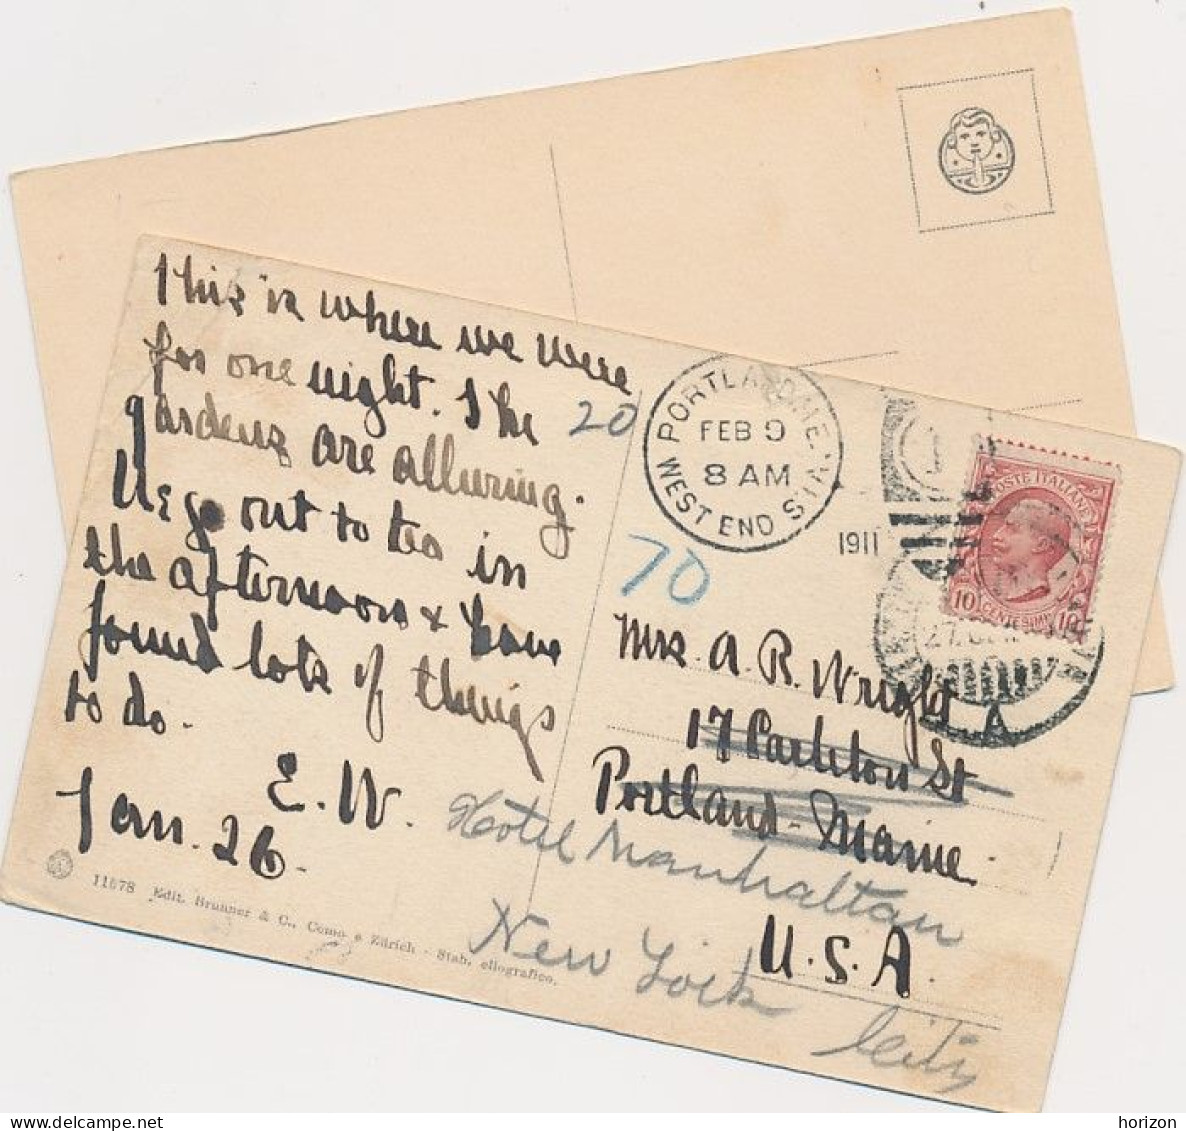 This is where we were
for one night. The
gardens are alluring.
We go out to tea in
the afternoon & have
found lots of things
to do.
E. W.
Jan. 26.
20
70
PORTLAND, ME.
FEB 9
8 AM
WEST END STA.
1911
POSTE ITALIANE
10 CENTESIMI 10
A
Mrs. A. R. Wright
17 Carleton St
Portland - Maine.
U.S.A.
Hotel Manhattan
New York
City
11578 Edit. Brunner & C., Como e Zürich - Stab. eliografico.
horizon